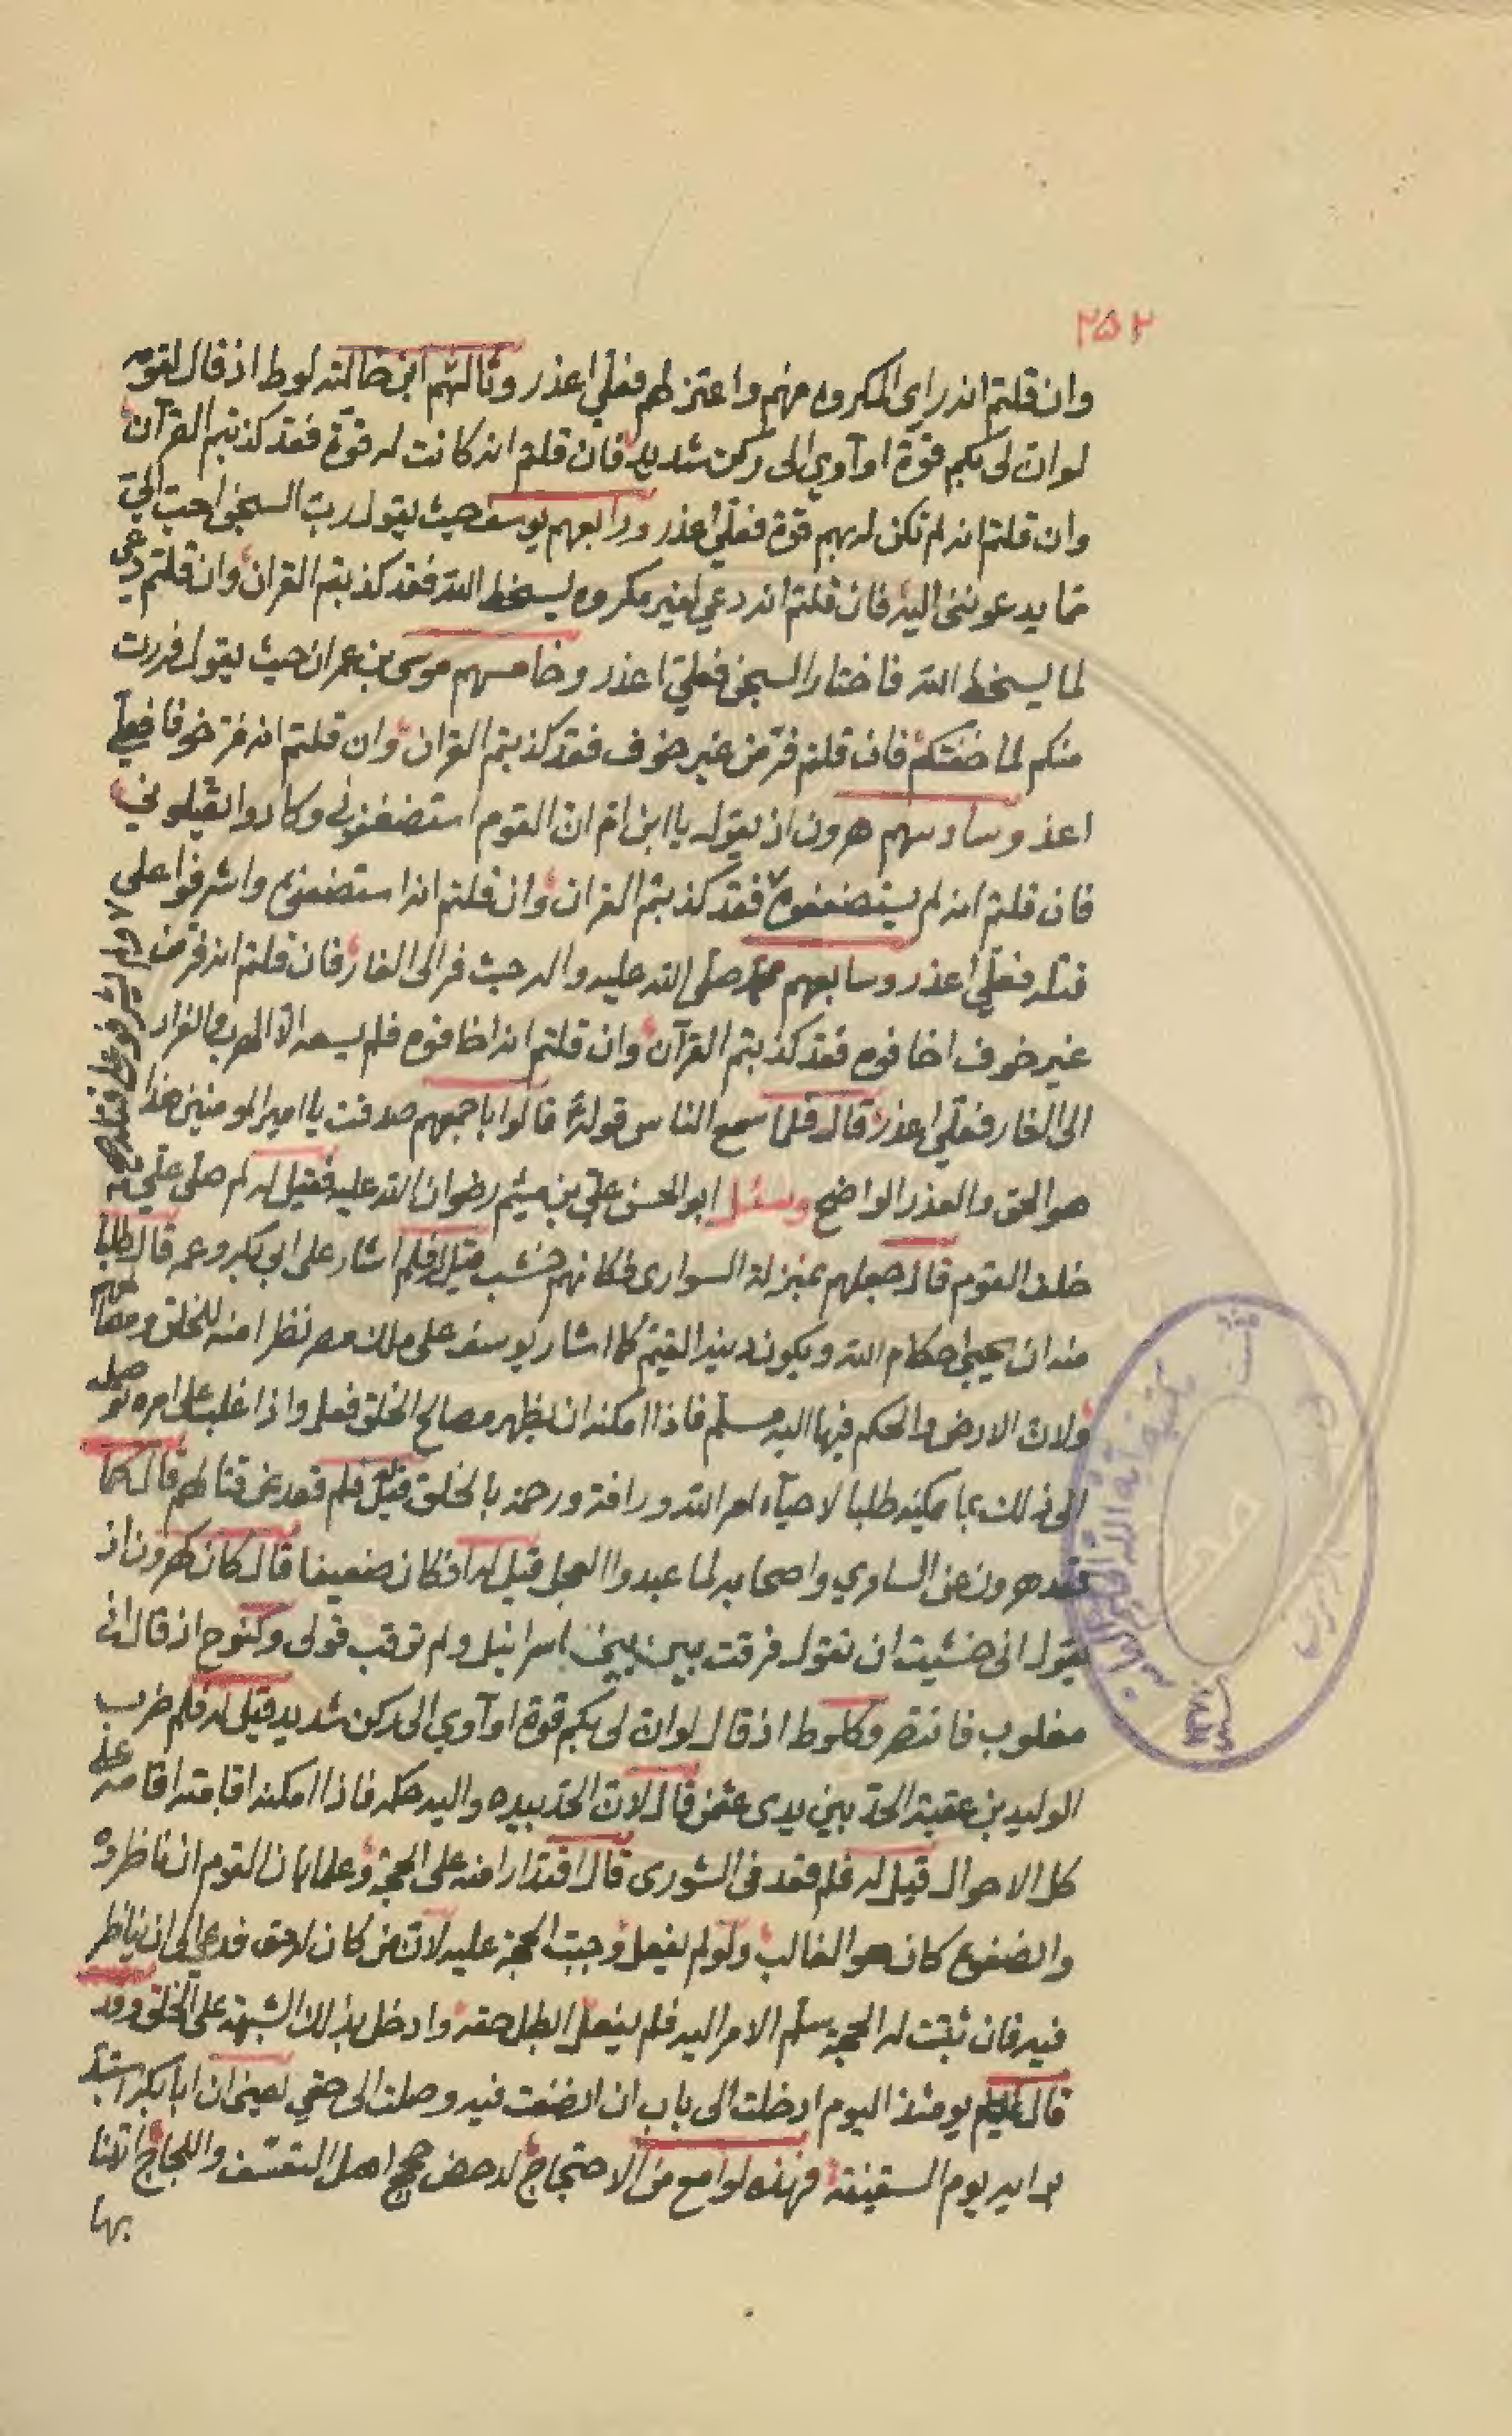 ٢٥٢
وان قلتم انه راى المكروه منهم واعتزلهم فعلي اعذر وثالثهم ابن خالته لوط اذ قال لقومه
لو ان لى بكم قوة او آوي الى ركن شديد فان قلتم انه كانت له قوة فقد كذبتم القرآن
وان قلتم انه لم تكن له بهم قوة فعلي اعذر ورابعهم يوسف حيث يقول رب السجن احب الي
مما يدعونني اليه فان قلتم انه دعي لغير مكروه يسخط الله فقد كذبتم القران وان قلتم دعي
لما يسخط الله فاختار السجن فعلي اعذر وخامسهم موسى بن عمران حيث يقول ففررت
منكم لما خفتكم فان قلتم فر من غير خوف فقد كذبتم القران وان قلتم انه فر خوفا فعلي
اعذر وسادسهم هرون اذ يقول يا ابن ام ان القوم استضعفوني وكادوا يقتلونني
فان قلتم انه لم يستضعفوه فقد كذبتم القران وان قلتم انه استضعفوه واشرفوا على
قتله فعلي اعذر وسابعهم محمد صلى الله عليه واله حيث فر الى الغار فان قلتم انه فر من
غير خوف اخافوه فقد كذبتم القرآن وان قلتم انه اخافوه فلم يسعه الا الهرب والفرار
الى الغار فعلي اعذر قال فلما سمع الناس قوله قالوا باجمعهم صدقت يا امير المومنين هذا
هو الحق والعذر الواضح وسئل ابو الحسن علي بن ميثم رضوان الله عليه فقيل له لم صلى علي
خلف القوم قال جعلهم بمنزلة السوارى فكانهم خشب قيل له فلم اشار على ابي بكر وعمر قال طلبا
منه ان يحيى احكام الله ويكون دينه القيم كما اشار يوسف على ملك مصر نظرا منه للخلق ومصالحهم
ولان الارض والحكم فيها اليه مسلم فاذا امكنه ان يظهر مصالح الخلق فعل واذا غلب على امره توصل
الى ذلك بما يمكنه طلبا لاحياء امر الله ورافة ورحمة بالخلق قيل فلم قعد عن قتالهم قال كما
قعد هرون عن السامري واصحابه لما عبدوا العجل قيل له افكان ضعيفا قال كان كهرون اذ
يقول انى خشيت ان تقول فرقت بين بني اسرائيل ولم ترقب قولى وكنوح اذ قال انى
مغلوب فانتصر وكلوط اذ قال لو ان لى بكم قوة او آوي الى ركن شديد قيل له فلم ضرب
الوليد بن عقبة الحد بين يدى عثمن قال لان الحد بيده واليه حكمه فاذا امكنه اقامته اقامه على
كل الاحوال قيل له فلم قعد فى الشورى قال اقتدارا منه على الحجة وعلما بان القوم ان ناظروه
وانصفوه كان هو الغالب ولو لم يفعل وجبت الحجة عليه لان من كان له حق فدعي الى ان يناظر
فيه فان ثبت له الحجة سلم الامر اليه فلم يفعل ابطل حقه وادخل بذلك الشبهة على الخلق وقد
قال يومئذ اليوم ادخلت الى باب ان انصفت فيه وصلت الى حقي يعنى ان ابا بكر استبد
برايه يوم السقيفة فهذه لوامع من الاحتجاج لدحض حجج اهل التعسف واللجاج اتينا
بها